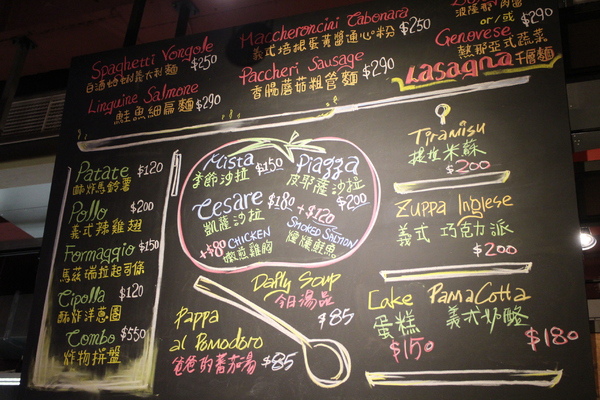 Spaghetti Vongole $250
白酒蛤蜊義大利麵
Linguine Salmone
鮭魚細扁麵 $290
Maccheroncini Cabonara
義式培根蛋黃醬通心粉 $250
Paccheri Sausage
香腸蘑菇粗管麵 $290
or/或 $290
Genovese
熱那亞式蔬菜
Lasagna 千層麵
Patate $120
酥炸馬鈴薯
Pollo $200
義式辣雞翅
Formaggio $150
馬茲瑞拉起司條
Cipolla $120
酥炸洋蔥圈
Combo $550
炸物拼盤
Mista $150
季節沙拉
Piazza
皮耶薩沙拉
$200
Cesare $180
凱薩沙拉
+$80 CHICKEN
嫩煎雞胸
+$120
SMOKED SALMON
煙燻鮭魚
Daily Soup
今日湯品
$85
Pappa
al Pomodoro
爸爸的蕃茄湯 $85
Tiramisu
提拉米蘇
$200
Zuppa Inglese
義式 巧克力派
$200
Cake
蛋糕
$150
PanaCotta
義式奶酪
$180